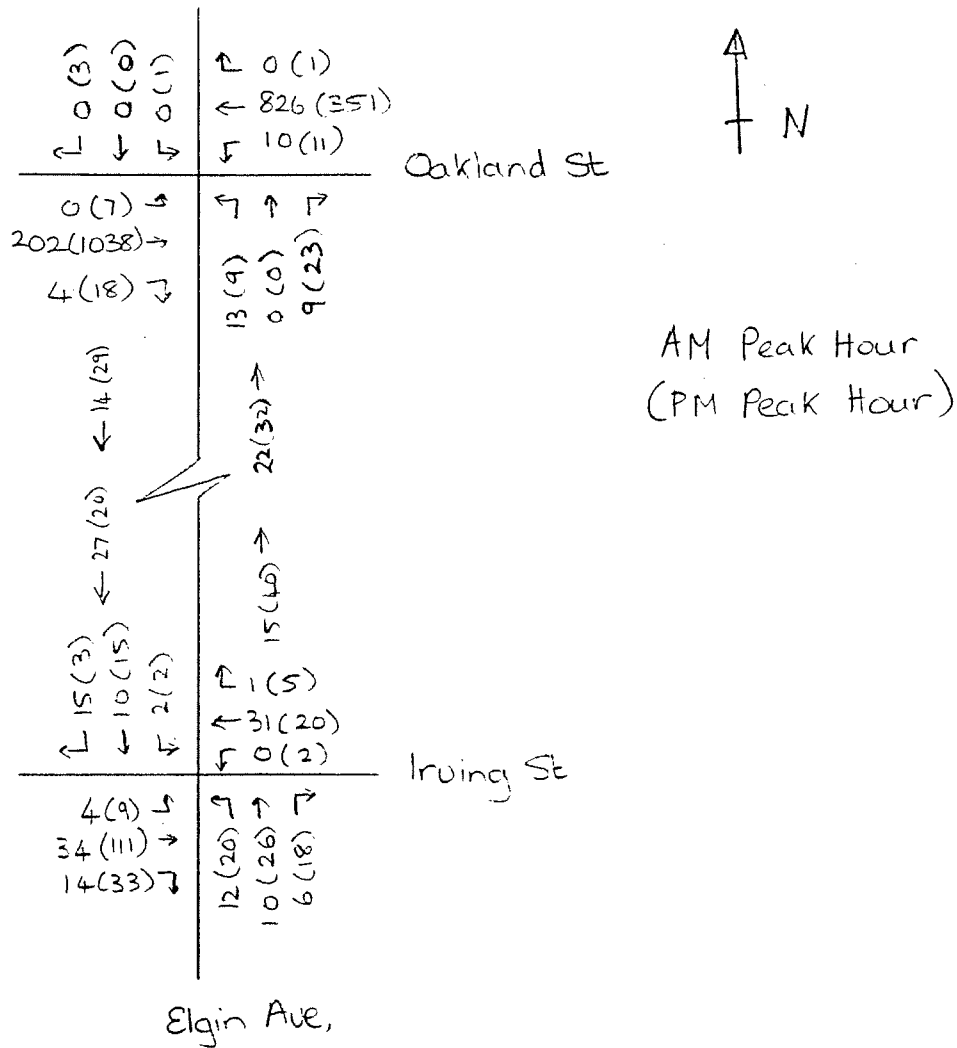 0 (3)
0 (0)
0 (1)
0 (1)
826 (351)
10 (11)
Oakland St
N
0 (7)
202 (1038)
4 (18)
13 (9)
0 (0)
9 (23)
AM Peak Hour
(PM Peak Hour)
14 (29)
22 (32)
27 (20)
15 (40)
15 (3)
10 (15)
2 (2)
1 (5)
31 (20)
0 (2)
Irving St
4 (9)
34 (111)
14 (33)
12 (20)
10 (26)
6 (18)
Elgin Ave,